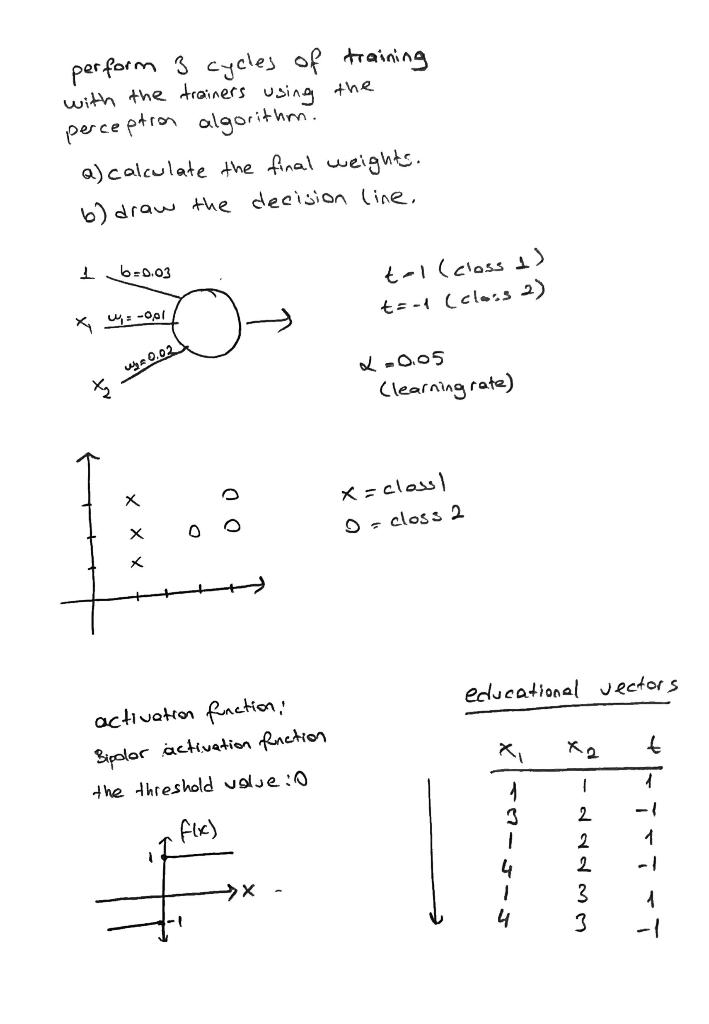 perform 3 cycles of training
with the trainers using the
perceptron algorithm.
a) calculate the final weights.
b) draw the decision line.
1 b=0.03
x₁ w₁= -0,01
x₂ w₂=0.02
t=1 (class 1)
t=-1 (class 2)
α=0.05
(learning rate)
x = class 1
O = class 2
activation function:
Bipolar activation function
the threshold value: 0
f(x)
1
x
-1
educational vectors
x₁ x₂ t
1 1 1
3 2 -1
1 2 1
4 2 -1
1 3 1
4 3 -1